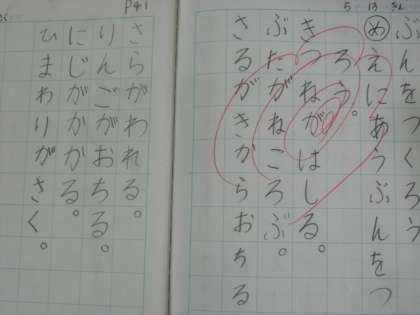 5 13 きん
ぶんをつくろう
めえにあうぶんをつ
ろう。
きつねがはしる。
ぶたがねころぶ。
さるがきからおちる
P41
さらがわれる。
りんごがおちる。
にじがかかる。
ひまわりがさく。